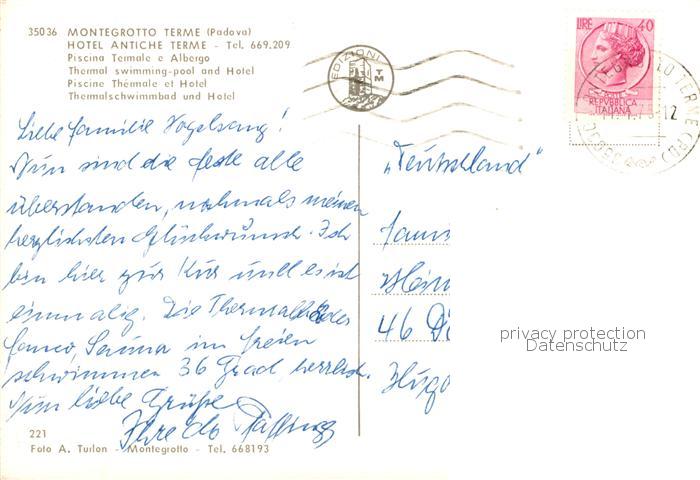 35036 MONTEGROTTO TERME (Padova)
HOTEL ANTICHE TERME - Tel. 669.209
Piscina Termale e Albergo
Thermal swimming-pool and Hotel
Piscine Thérmale et Hotel
Thermalschwimmbad und Hotel
EDIZIONI TM
LIRE 40
REPVBBLICA
ITALIANA
Liebe Familie Vogelsang!
Nun sind die Feste alle
überstanden, nochmals meinen
herzlichsten Glückwunsch. Ich
bin hier zur Kur und es ist
einmalig. Die Thermalbäder
Fango, Sauna im freien
schwimmen 36 Grad herrlich.
Nun liebe Grüße
Ihre
„Deutschland"
Fam
Hein
46 Do
Hugo
privacy protection
Datenschutz
221
Foto A. Turlon - Montegrotto - Tel. 668193